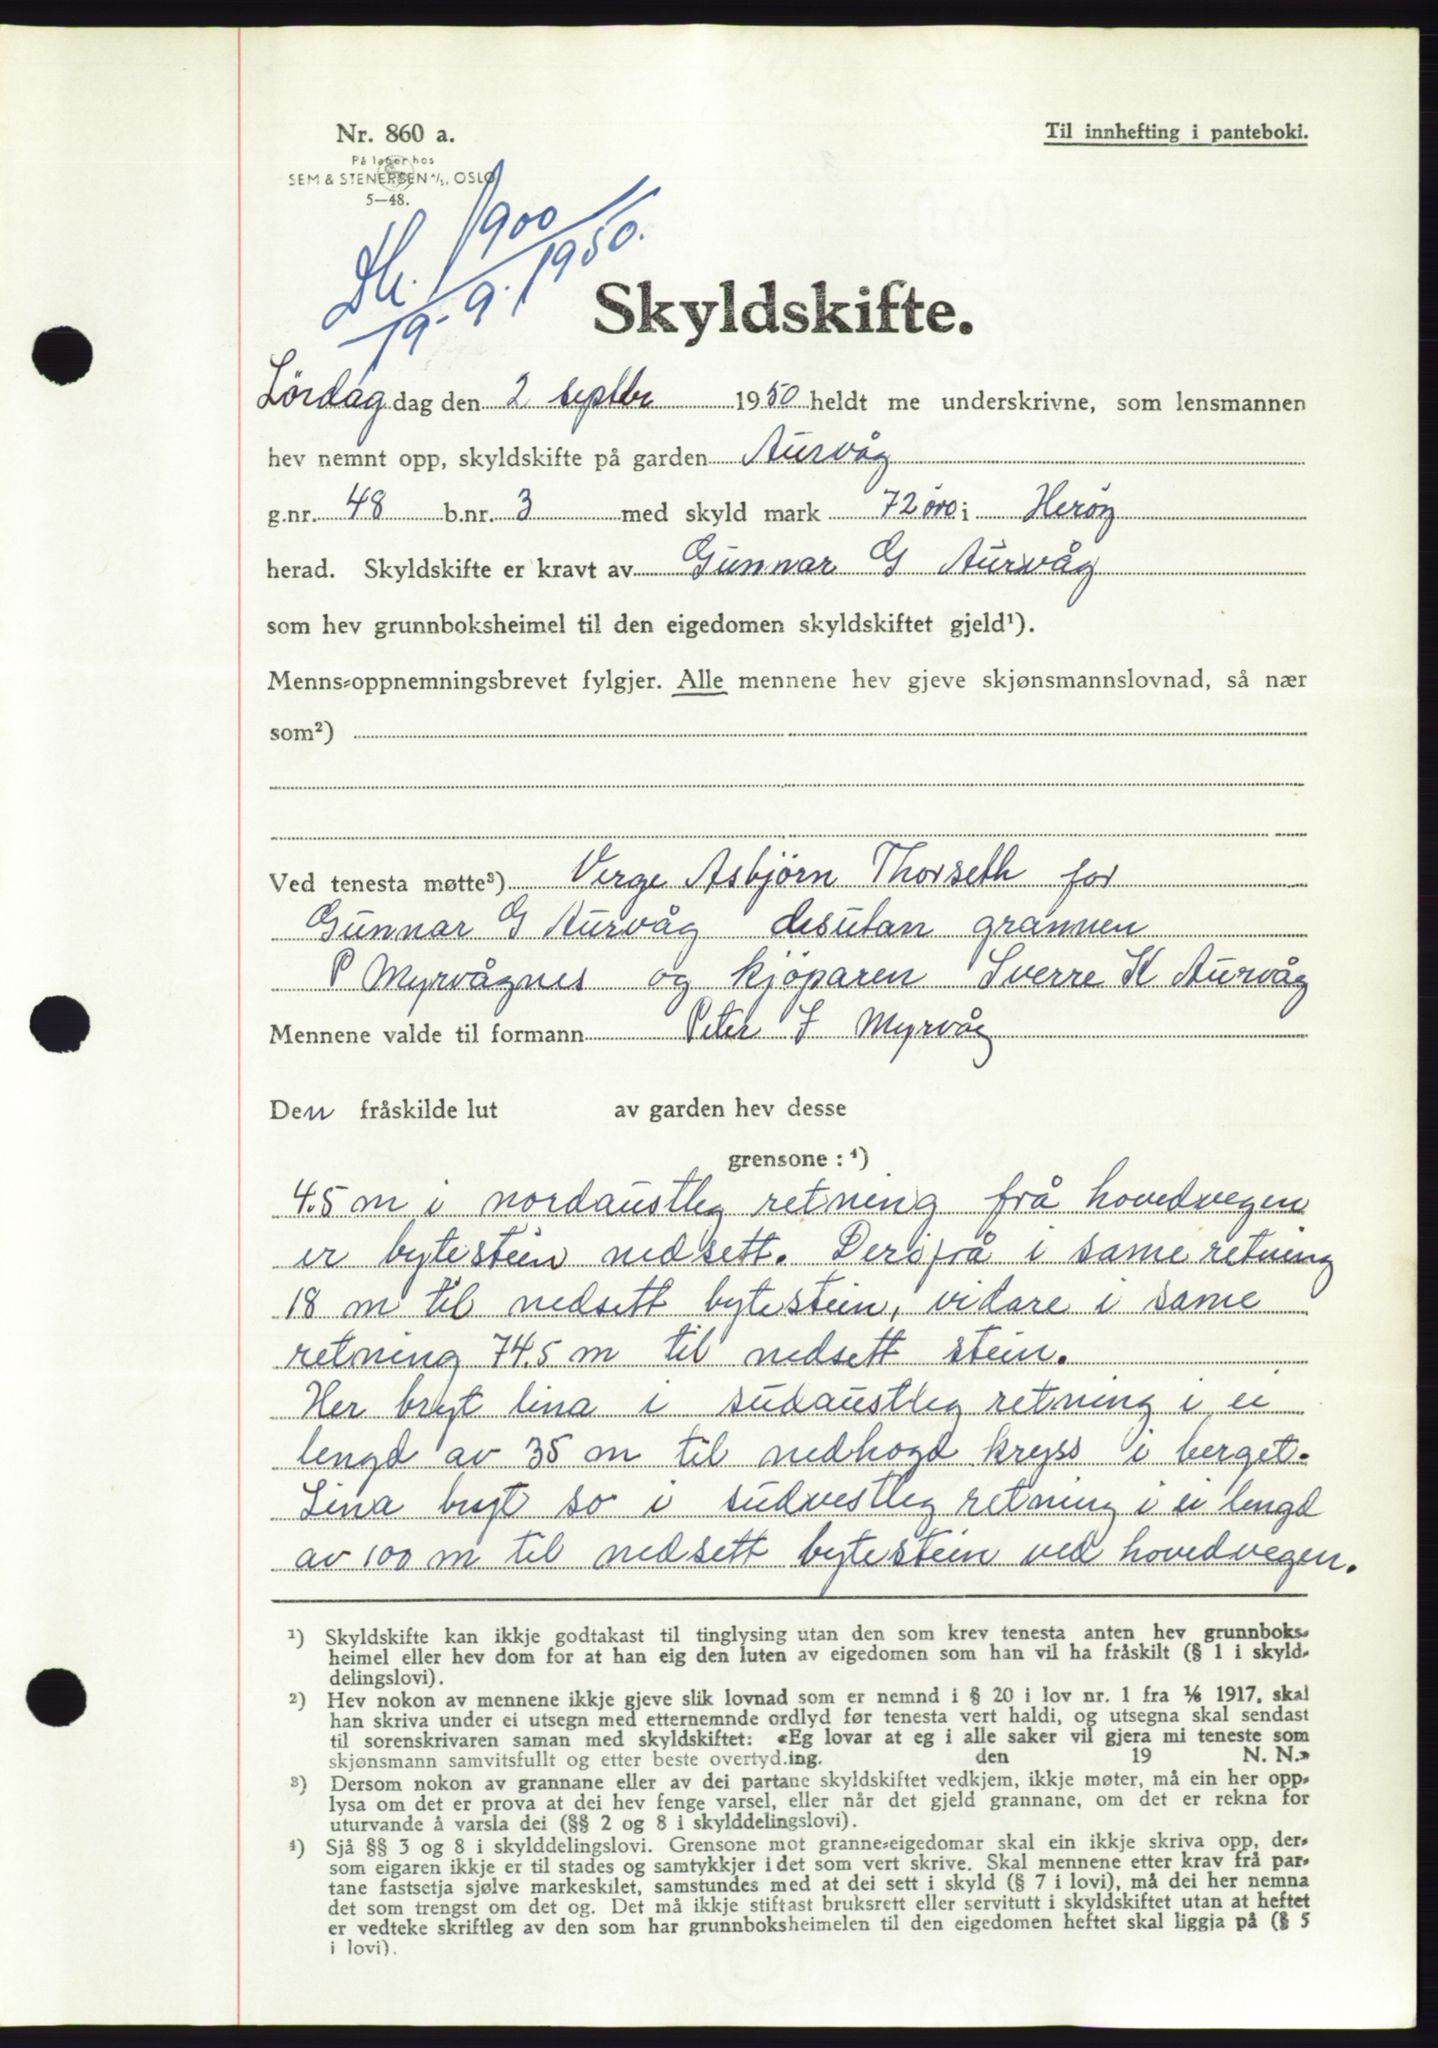 Nr. 860 a.
Til innhefting i panteboki.
På lager hos
SEM & STENERSEN A/S, OSLO
5—48.
Db. 1900
19-9. 1950.
Skyldskifte.
Lördag dag den 2 septbr 1950 heldt me underskrivne, som lensmannen
hev nemnt opp, skyldskifte på garden Aurvåg
g.nr. 48 b.nr. 3 med skyld mark 72 öre i Heröy
herad. Skyldskifte er kravt av Gunnar G Aurvåg
som hev grunnboksheimel til den eigedomen skyldskiftet gjeld¹).
Menns-oppnemningsbrevet fylgjer. Alle mennene hev gjeve skjønsmannslovnad, så nær
som²)
Ved tenesta møtte³) Verge Asbjörn Thorseth for
Gunnar G Aurvåg desutan grannen
P Myrvågnes og kjöparen Sverre K Aurvåg
Mennene valde til formann Peter J Myrvåg
Den fråskilde lut av garden hev desse
grensone : ⁴)
4.5 m i nordaustleg retning frå hovedvegen
er bytestein nedsett. Derifrå i same retning
18 m til nedsett bytestein, vidare i same
retning 74.5 m til nedsett stein.
Her bryt lina i sudaustleg retning i ei
lengd av 35 m til nedhogd kryss i berget.
Lina bryt so i sudvestleg retning i ei lengd
av 100 m til nedsett bytestein ved hovedvegen.
¹) Skyldskifte kan ikkje godtakast til tinglysing utan den som krev tenesta anten hev grunnboks-
heimel eller hev dom for at han eig den luten av eigedomen som han vil ha fråskilt (§ 1 i skyld-
delingslovi).
²) Hev nokon av mennene ikkje gjeve slik lovnad som er nemnd i § 20 i lov nr. 1 fra ⅛ 1917, skal
han skriva under ei utsegn med etternemnde ordlyd før tenesta vert haldi, og utsegna skal sendast
til sorenskrivaren saman med skyldskiftet: «Eg lovar at eg i alle saker vil gjera mi teneste som
skjønsmann samvitsfullt og etter beste overtyding. den 19 N. N.»
³) Dersom nokon av grannane eller av dei partane skyldskiftet vedkjem, ikkje møter, må ein her opp-
lysa om det er prova at dei hev fenge varsel, eller når det gjeld grannane, om det er rekna for
uturvande å varsla dei (§§ 2 og 8 i skylddelingslovi).
⁴) Sjå §§ 3 og 8 i skylddelingslovi. Grensone mot granne-eigedomar skal ein ikkje skriva opp, der-
som eigaren ikkje er til stades og samtykkjer i det som vert skrive. Skal mennene etter krav frå par-
tane fastsetja sjølve markeskilet, samstundes med at dei sett i skyld (§ 7 i lovi), må dei her nemna
det som trengst om det og. Det må ikkje stiftast bruksrett eller servitutt i skyldskiftet utan at heftet
er vedteke skriftleg av den som har grunnboksheimelen til den eigedomen heftet skal liggja på (§ 5
i lovi).